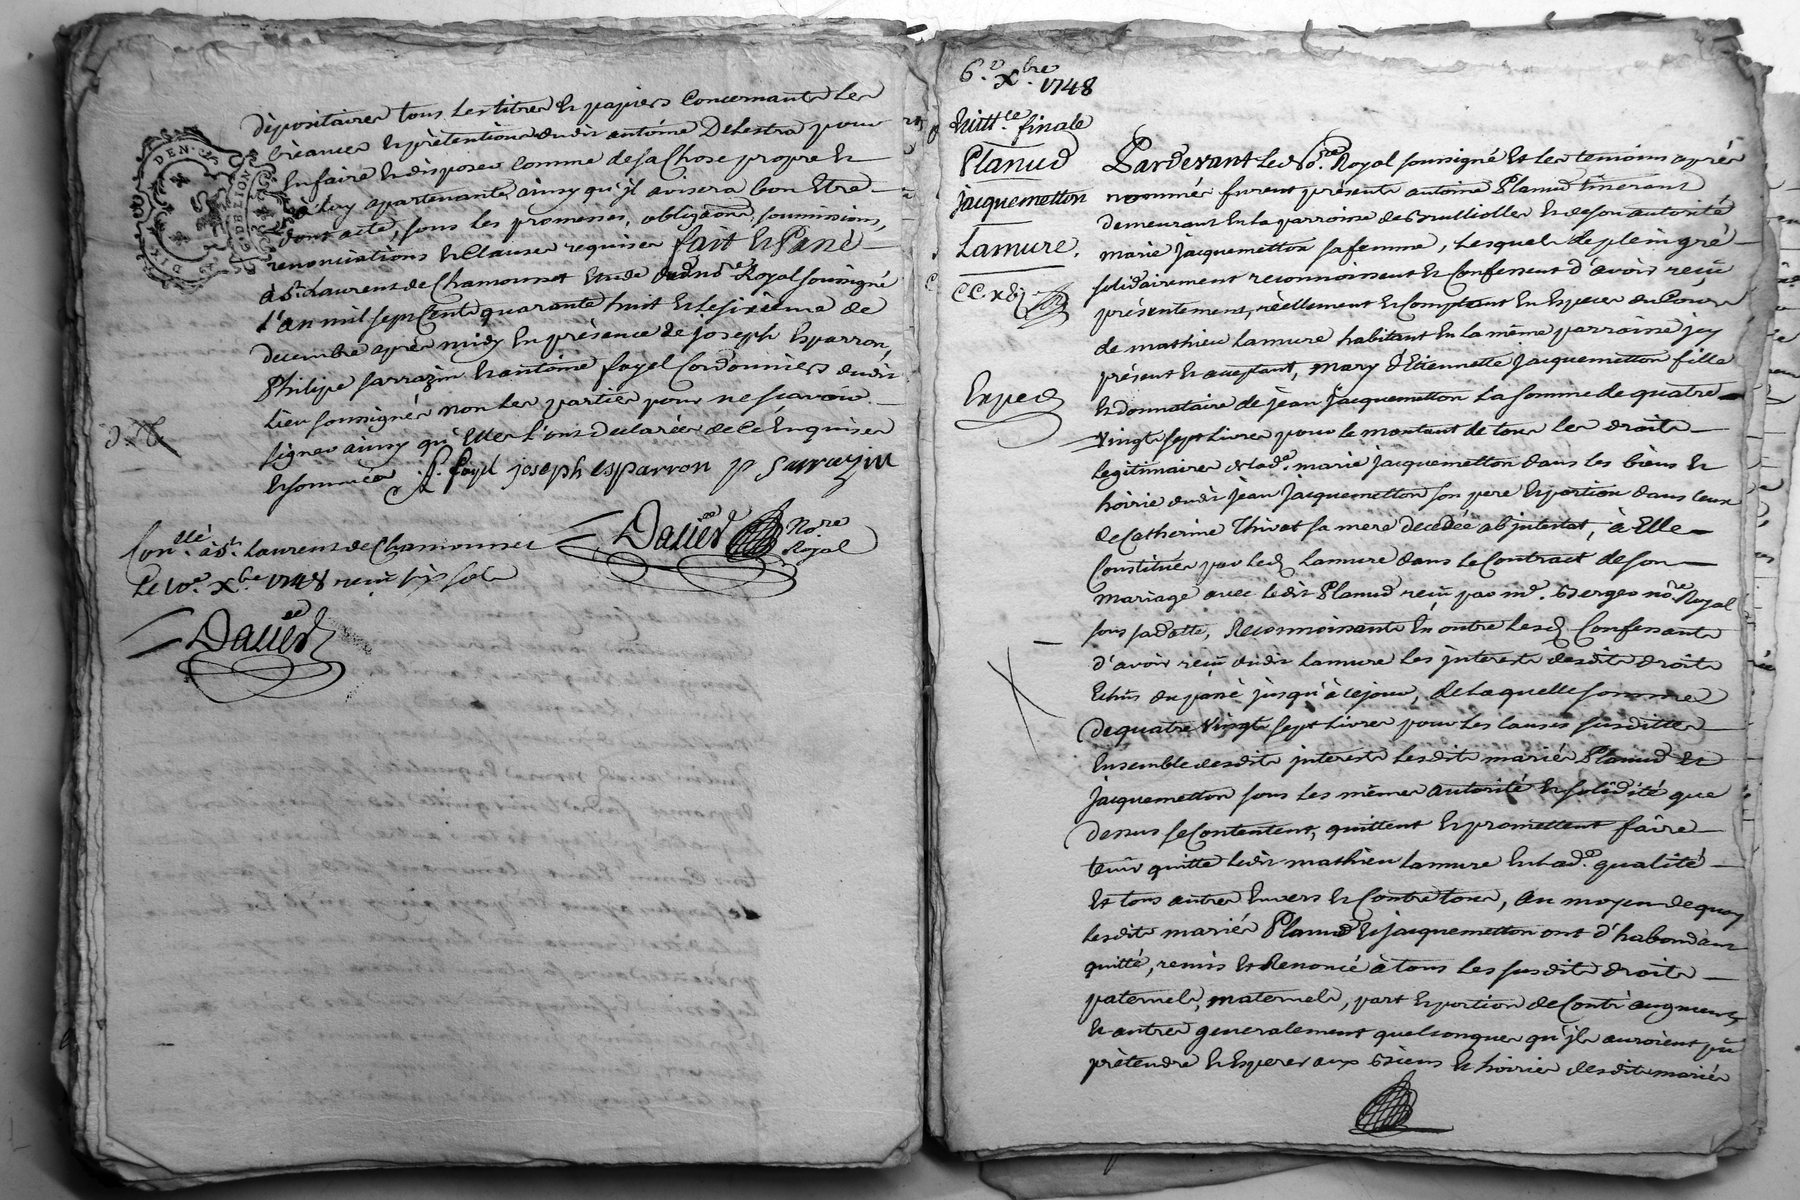 dépositaires tous les titres et papiers concernants les
créances et prétentions dudit antoine Delestra pour
en faire et disposer comme de sa Chose propre et
à luy apartenante ainsy qu'jl avisera bon Etre
dont acte, sous les promesses, obligaôns, soumissions,
renonciations et Clauses requises fait et Passé
à St. Laurent de Chamousset Etude dud. no.re Royal soussigné
l'an mil sept Cents quarante huit et le sixième de
decembre après midy En présence de Joseph Esparron,
Philipe sarrazin et antoine fayel Cordonniers dudit
lieu soussignés non les parties pour ne sçavoir
signer ainsy qu'Elles l'ont declarées de ce Enquises
et sommées A. fayel joseph esparron p Sarrazin
Davier No.re Royal
Con.llé à St. Laurent de Chamousset
Le 10.e Xbre 1748 reçu six sols
Davier
DE LION
6.e Xbre 1748
quitt.ce finale
Planud
Jaquemetton
Lamure.
Exped
Pardevant Le No.re Royal soussigné et les temoins après
nommés furent présents antoine Planud tisserant
demeurant en la parroisse de Brullioles et de son autorité
marie Jacquemetton sa femme, Lesquels de plein gré
solidairement reconnoissent et Confessent d'avoir reçû
présentement, réellement et Comptant En Especes du Cours
de mathieu Lamure habitant En la même parroisse jcy
présent et acceptant, mary d'Etiennette Jacquemetton fille
et donnataire de jean Jacquemetton La somme de quatre
vingts sept Livres pour le montant de tous les droits
legitimaires de lad.e marie Jacquemetton dans les biens et
hoirie dudit jean Jacquemetton son pere et portion dans ceux
de Catherine Thivat sa mere decedée abjntestat, à Elle
Constitués par led. Lamure dans le Contract de son
mariage avec ledit Planud reçû par m.e Berger no.re Royal
sous sa datte, Reconnoissants En outre Lesd. Confessants
d'avoir reçû dudit Lamure Les jnterests desdits droits
Echus du passé jusqu'à ce jour, de Laquelle somme
de quatre vingts sept Livres pour Les Causes susdittes
Ensemble desdits jnterests Lesdits mariés Planud et
Jacquemetton sous Les mêmes autorité et solidité que
dessus se Contentent, quittent et promettent faire
tenir quitte Ledit mathieu Lamure En Lad.e qualité
et tous autres Envers et Contre tous, au moyen de quoy
Lesdits mariés Planud et jacquemetton ont d'habondant
quitté, remis et Renoncé à tous Les susdits droits
paternels, maternels, part et portion de Contr'augments
et autres generalement quelconques qu'jls auroient pû
prétendre et Esperer aux Biens et hoiries desdits mariés